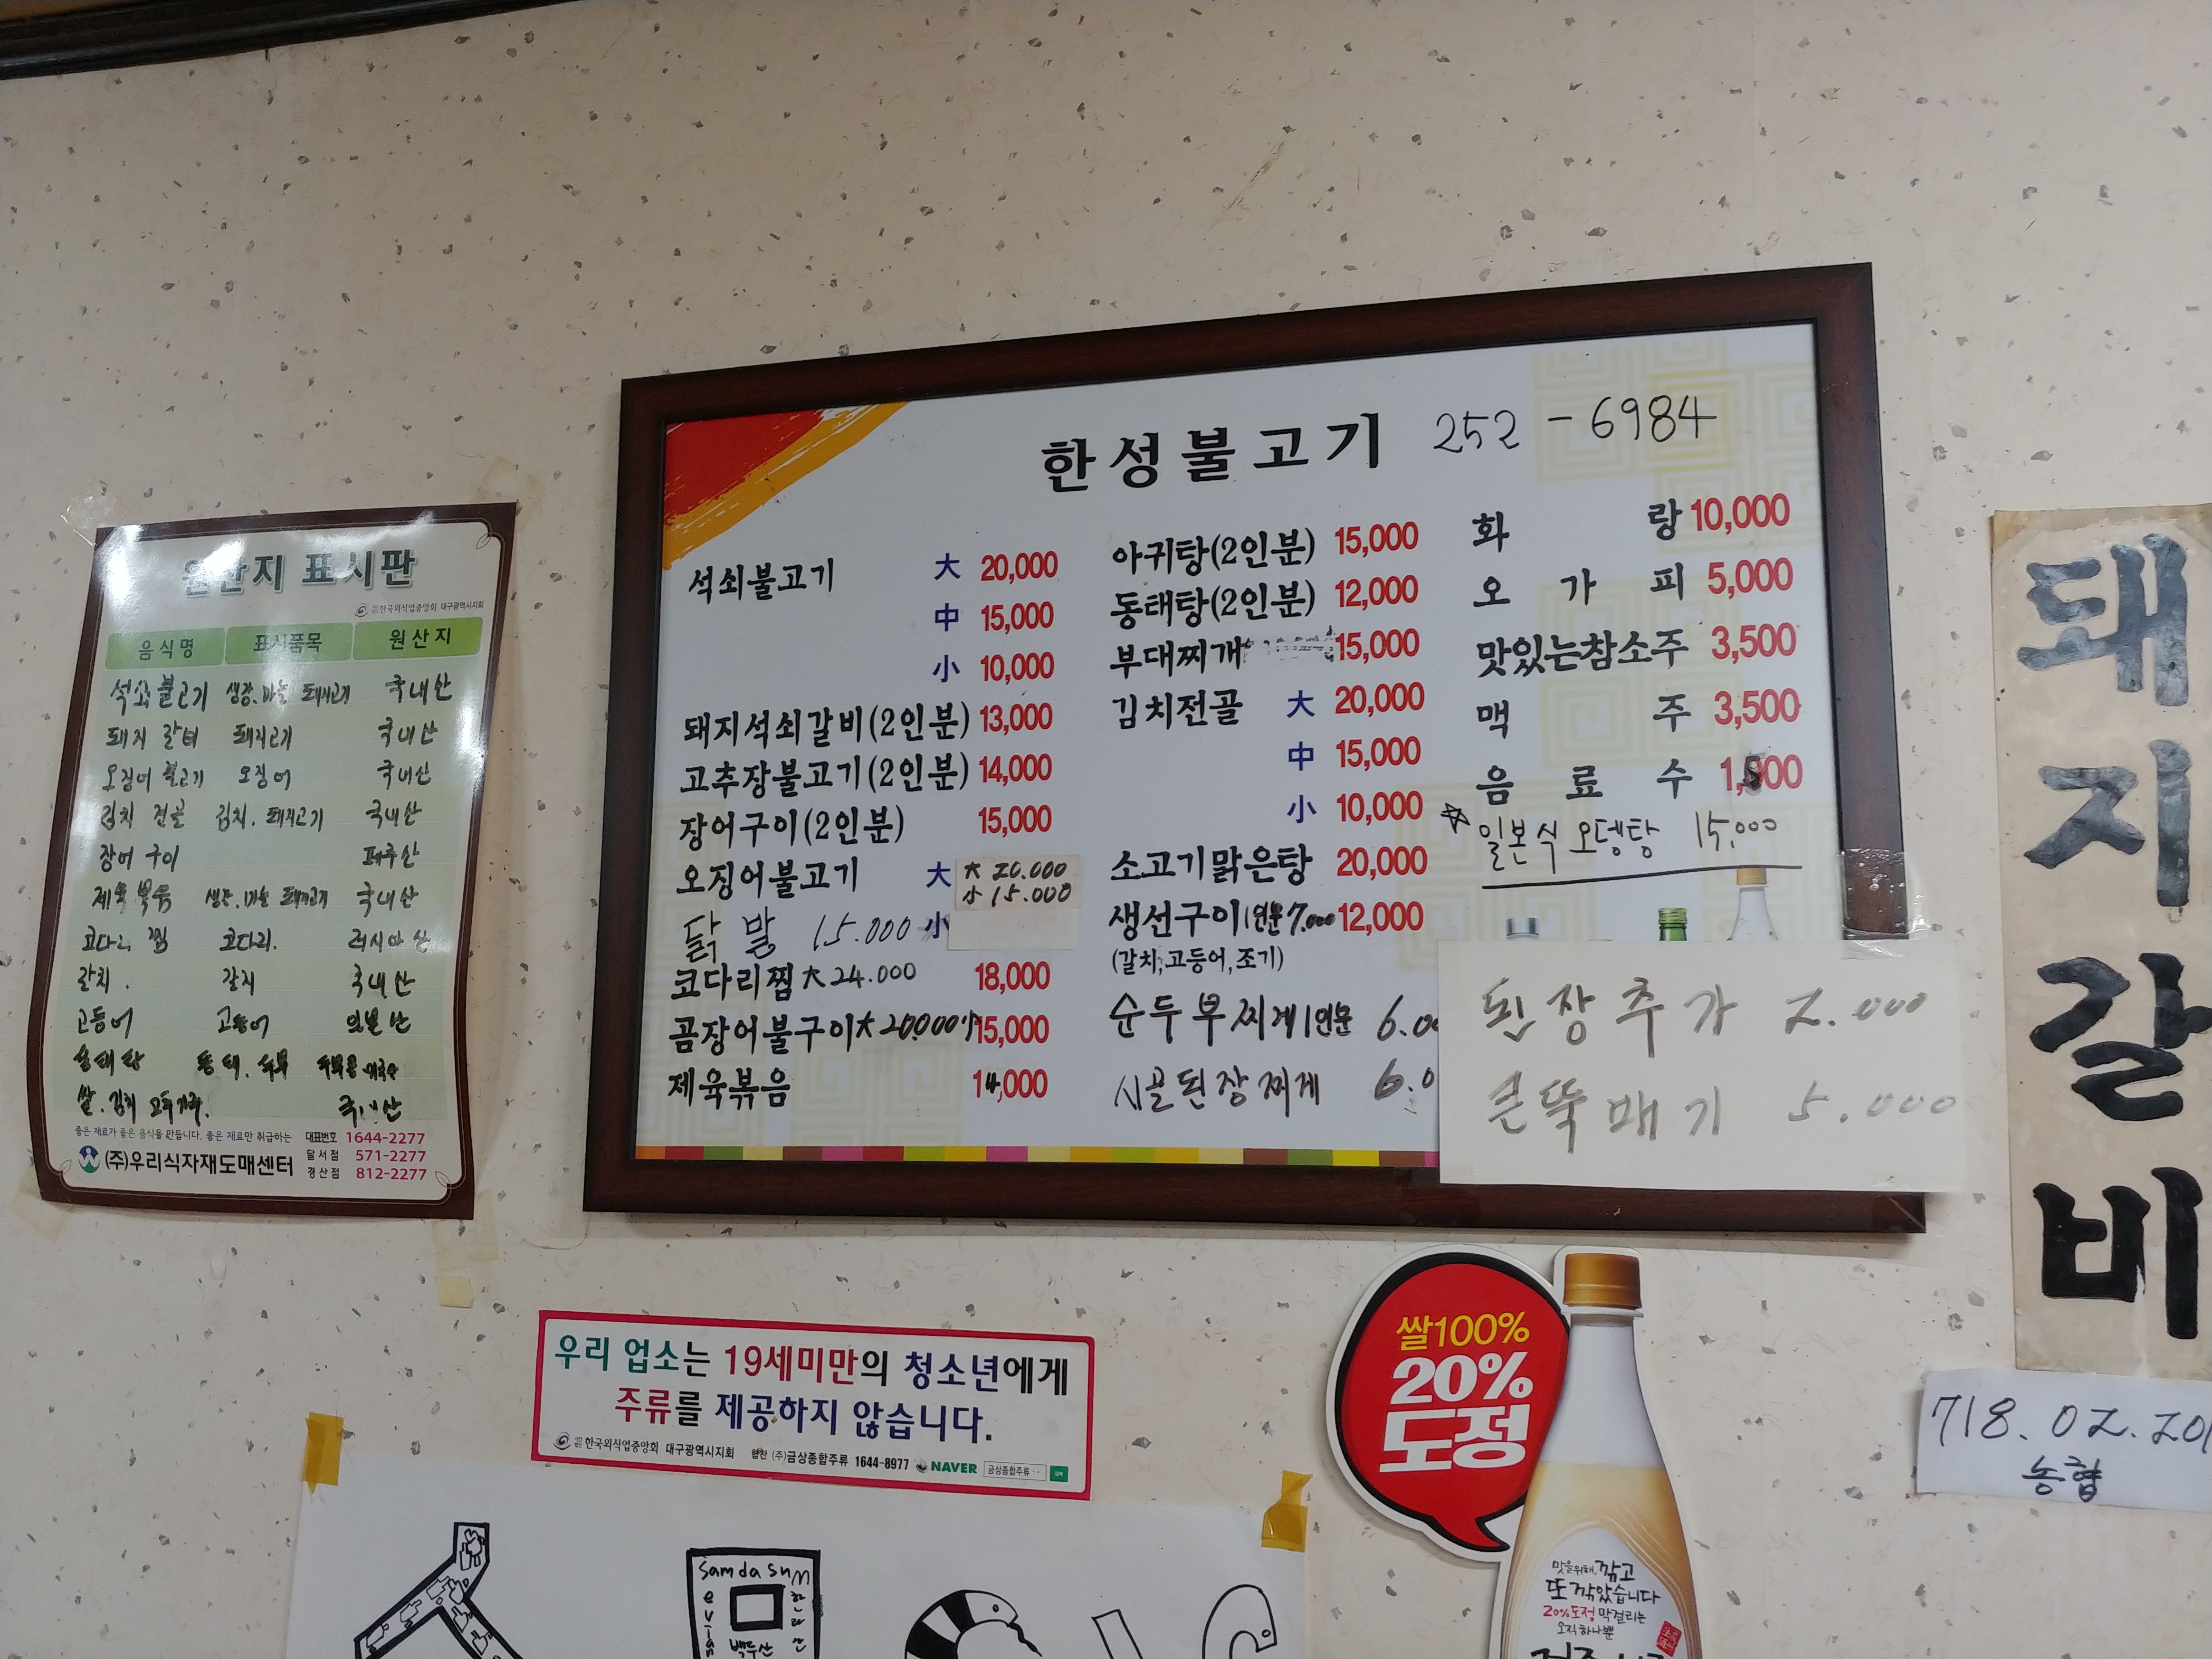 한성불고기 252-6984
석쇠불고기 大 20,000
中 15,000
小 10,000
돼지석쇠갈비(2인분) 13,000
고추장불고기(2인분) 14,000
장어구이(2인분) 15,000
오징어불고기 大 大 20.000
小 15.000
닭발 15.000 小
코다리찜 大 24.000 18,000
곰장어불구이 大 20.000 小 15,000
제육볶음 14,000
아귀탕(2인분) 15,000
동태탕(2인분) 12,000
부대찌개 15,000
김치전골 大 20,000
中 15,000
小 10,000
소고기맑은탕 20,000
생선구이 1인분 7.000 12,000
(갈치,고등어,조기)
순두부찌게 1인분 6.0
시골된장찌게 6.0
화랑 10,000
오가피 5,000
맛있는참소주 3,500
맥주 3,500
음료수 1,500
☆일본식오뎅탕 15,000
된장추가 2.000
큰뚝배기 5.000
원산지 표시판
(사)한국외식업중앙회 대구광역시지회
음식명 표시품목 원산지
석쇠불고기 생강.마늘 돼지고기 국내산
돼지갈비 돼지고기 국내산
오징어불고기 오징어 국내산
김치전골 김치.돼지고기 국내산
장어구이 페루산
제육볶음 생강.마늘 돼지고기 국내산
코다리찜 코다리. 러시아산
갈치. 갈치 국내산
고등어 고등어
동태탕 동태.두부
쌀.김치 고추가루. 국내산
좋은 재료가 좋은 음식을 만듭니다. 좋은 재료만 취급하는
(주)우리식자재도매센터
대표번호 1644-2277
달서점 571-2277
경산점 812-2277
돼지갈비
718.02.201
농협
우리 업소는 19세미만의 청소년에게
주류를 제공하지 않습니다.
(사)한국외식업중앙회 대구광역시지회 협찬 (주)금상종합주류 1644-8977 NAVER 금상종합주류
쌀100%
20%
도정
맛을위해, 깎고
또 깎았습니다
20%도정 막걸리는
오직하나뿐
Samdasun
백두산
한라산